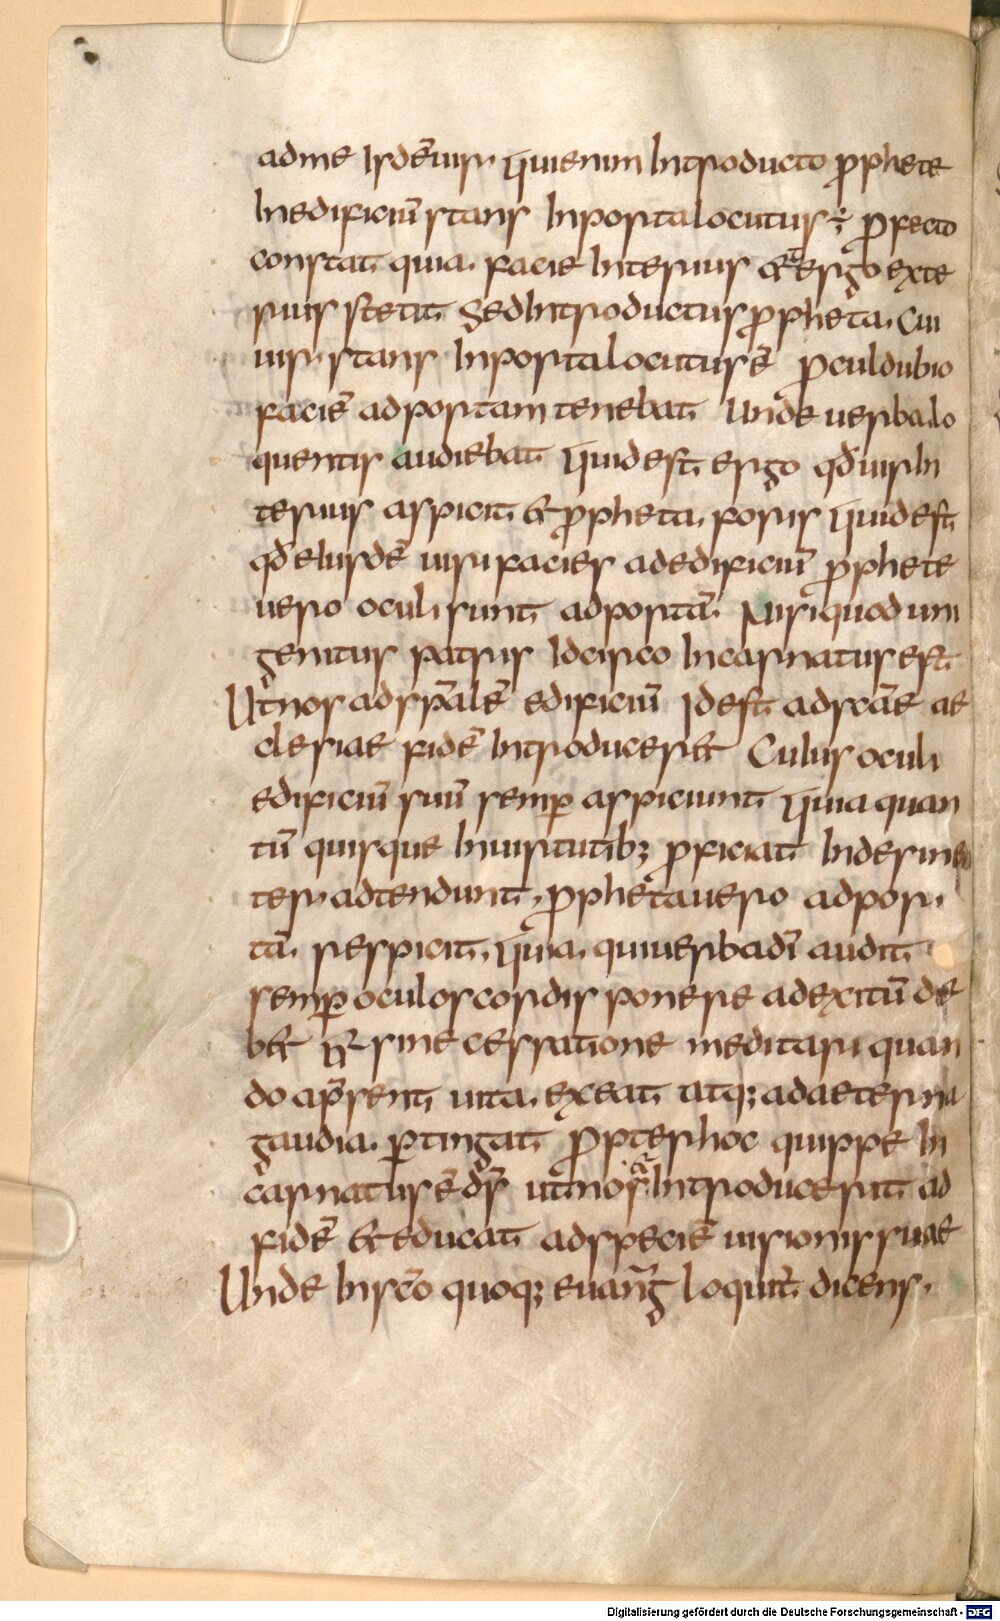 adme Isdē uir. quienim Introducto ꝓphete
Inedificiū stans Inportalocutus÷; ꝓfecto
constat quia. facie Interius & ergo exte
rius stetit Sed Introductus ꝓpheta. Cui
uir. stans Inportalocutusē ꝓculdubio
faciē adportam tenebat Unde uerba.lo
quentis audiebat Quid est ergo qđ uir In
terius aspicit. & ꝓpheta. foris Quid est
qđ eIusdē uiri facies adedificiū ꝓphete
uero oculi sunt adportā. Nisi quod uni
genitus patris Idcirco Incarnatus est.
Ut nos adspālē edificiū Idest adscāe ae
clesiae fidē Introducer& CuIus oculi
edificiū suū semꝑ aspiciunt Quia quan
tū quisque Inuirtutib; ꝓficiat Indesinen
ter. adtendunt. ꝓpheta uero adpor.
tā. respicit. Quia. qui uerba dī audit
semꝑ oculos cordis ponere adexitū de
b& sine cessatione meditari quan
do ap̄senti uita. exeat atq; adaeterna
gaudia. ꝑtingat ꝓpterhoc quippe In
carnatusē dš ut nos & Introducerit ad
fidē & educat adspeciē uisionis suae
Unde Inscō quoq; euanḡ loquit̄ dicens.
Digitalisierung gefördert durch die Deutsche Forschungsgemeinschaft - DFG